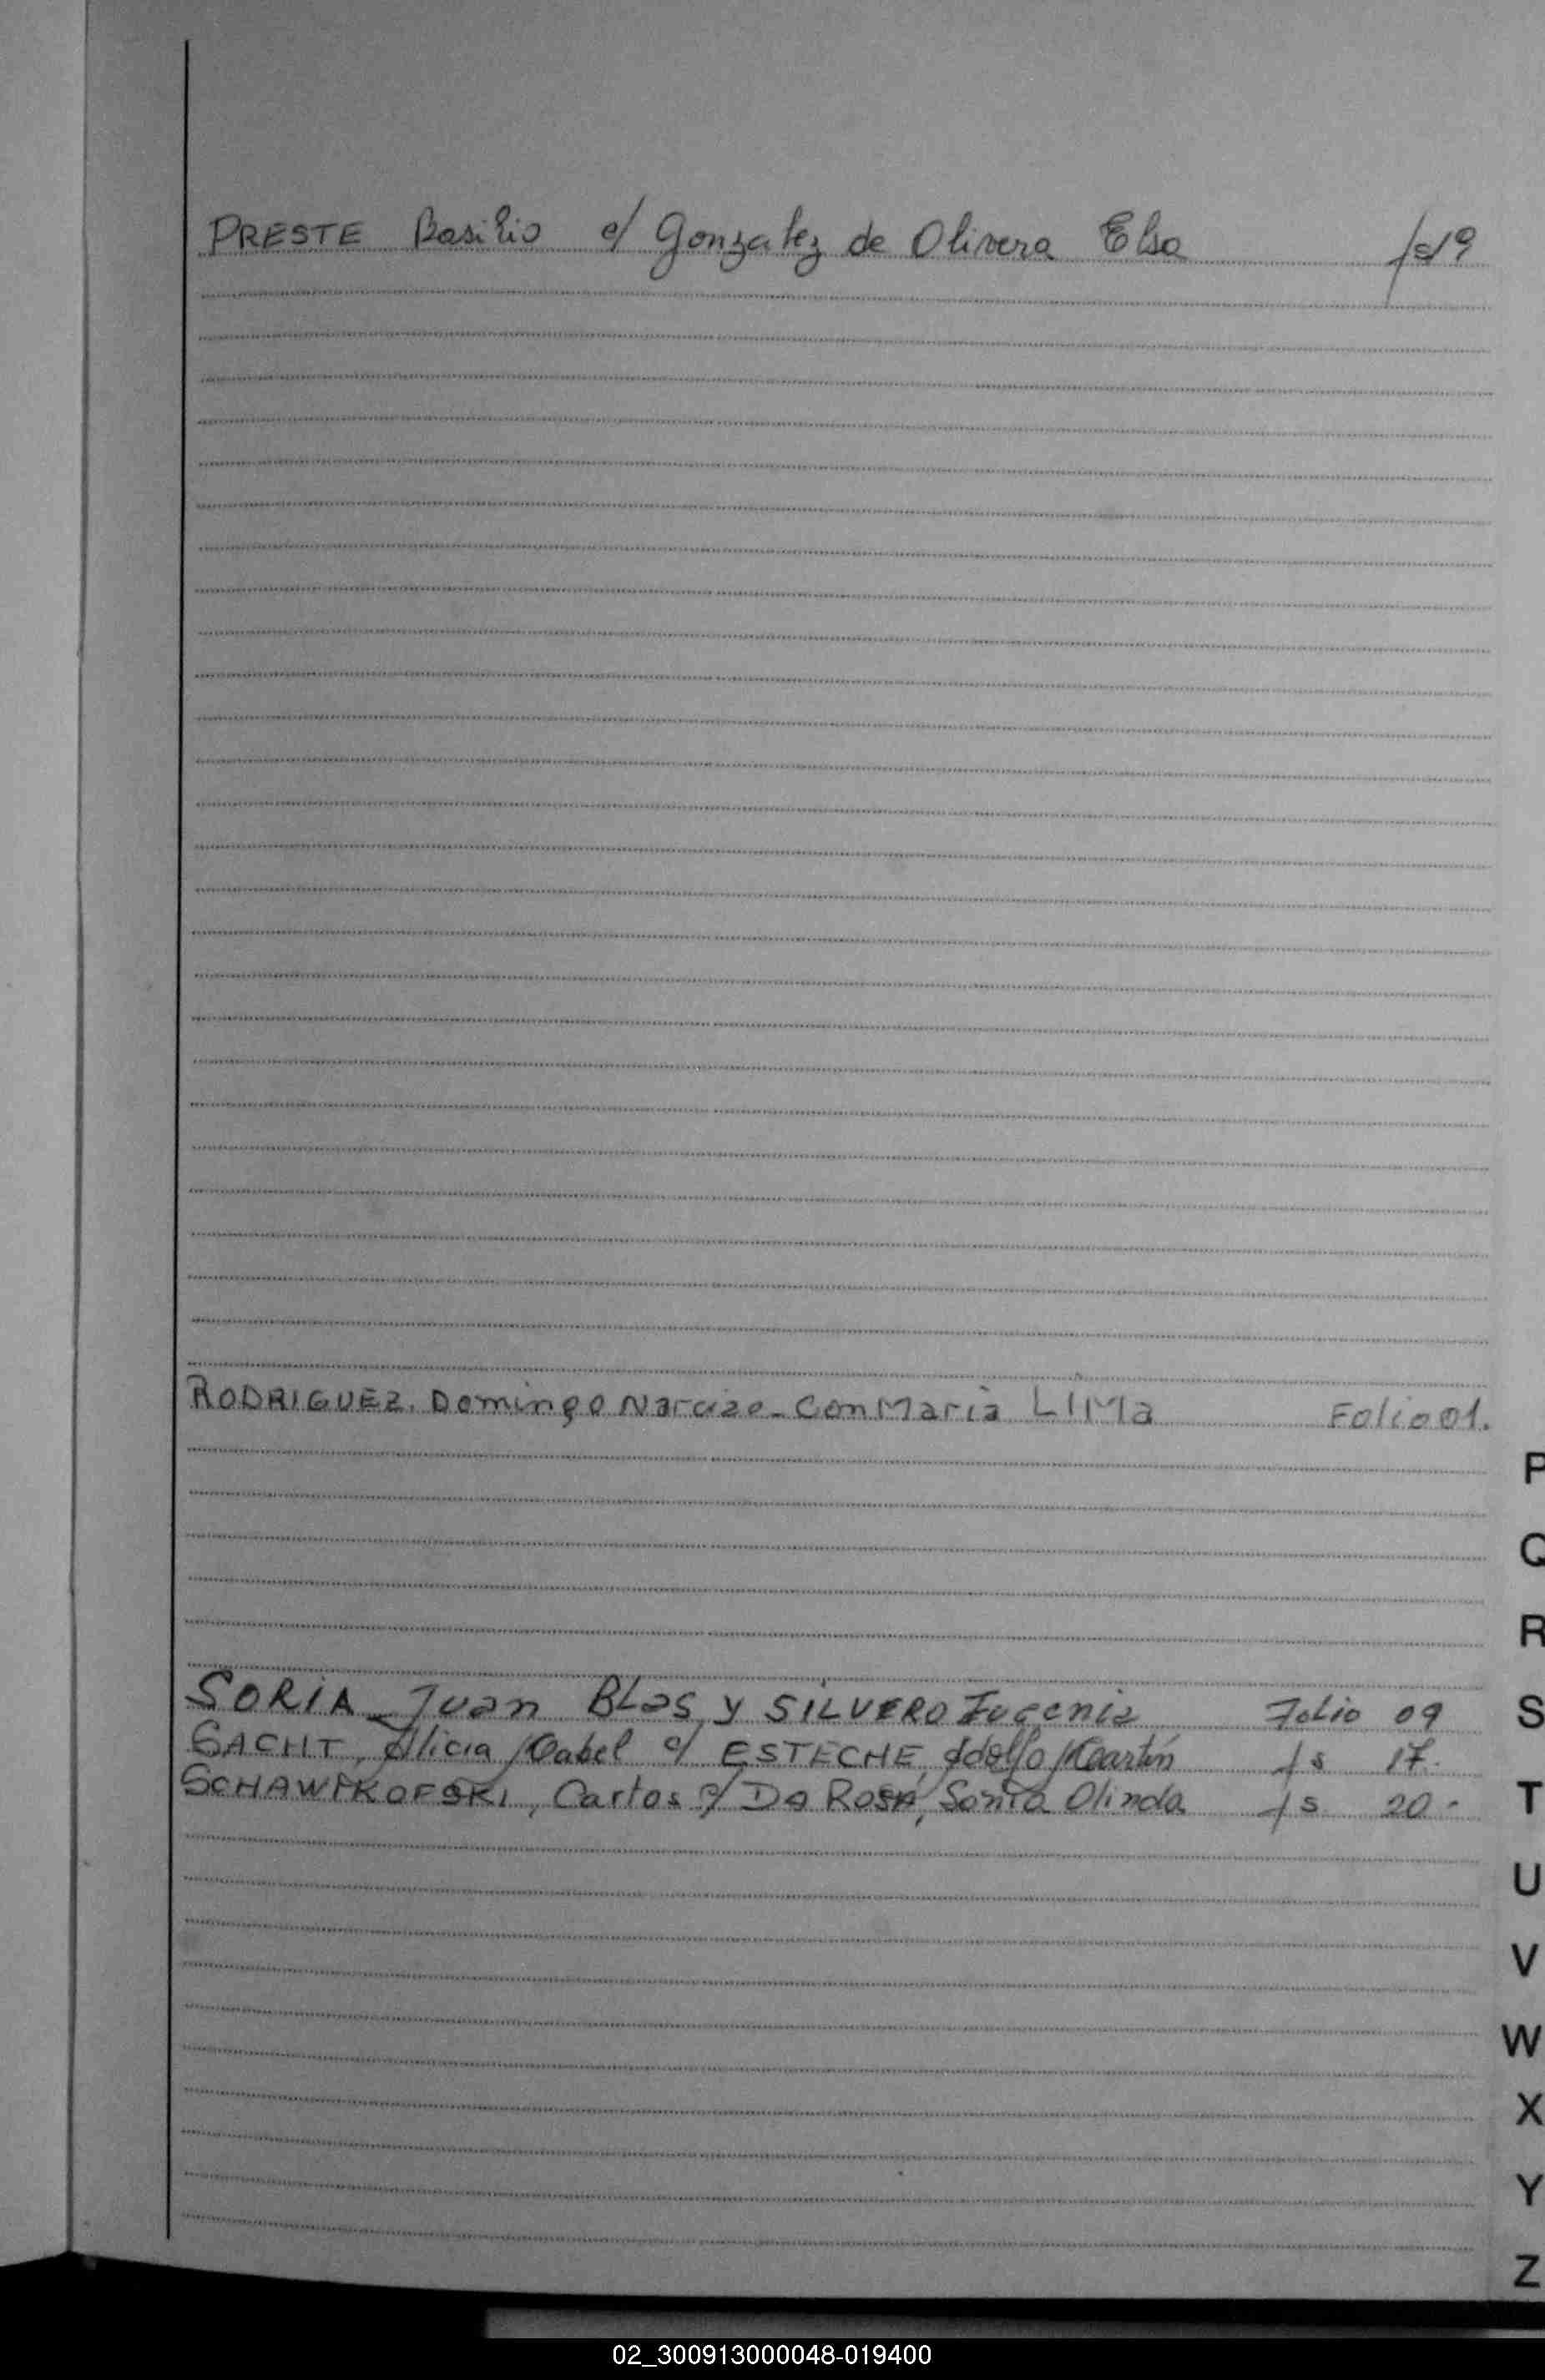 PRESTE Basilio c/ Gonzalez de Olivera Elsa fs 19
RODRIGUEZ. Domingo Narcizo - Con Maria LIMa Folio 01.
SORIA Juan BLas y SILVERO Eugenia Folio 09
SACHT, Alicia Mabel c/ ESTECHE, Adolfo Martín fs 17.
Carlos c/ Da ROSA, Sonia Olinda fs 20.-
P
Q
R
S
T
U
V
W
X
Y
Z
02_300913000048-019400